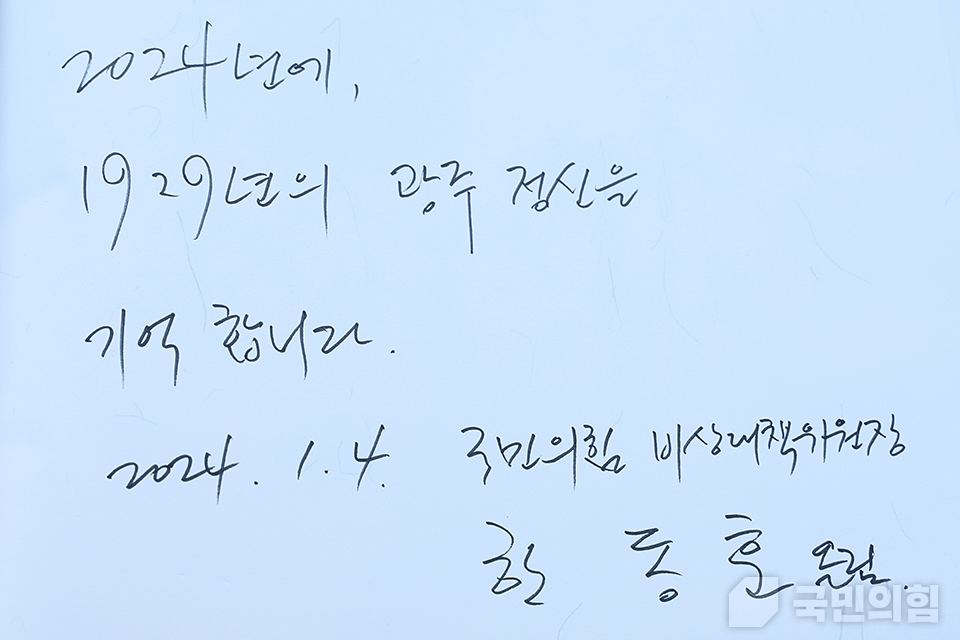 2024년에,
1929년의 광주 정신을
기억 합니다.
2024. 1. 4. 국민의힘 비상대책위원장
한 동 훈 올림.
국민의힘